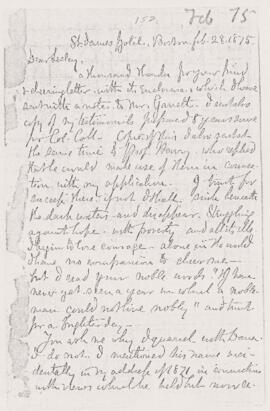 152 Feb 75
St. James Hotel, Boston Feb. 28. 1875.
Dear Seeley,
a thousand thanks for your kind
& cheering letter with its enclosure, which I have
sent with a note to Mr. Garrett. I enclose
copy of my testimonials prepared 8 years since
for Col. Coll. Copies of this I also sent at
the same time to Prof. Henry, who asked
that he could make use of them in connec-
tion with my application. I trust for
success there; if not I shall sink beneath
the dark waters and disappear. Struggling
against hope with poverty and all its ills
I begin to lose courage alone in the world
I have no companion to cheer me
but I read your noble words "If here
never yet seen a year in which a noble
man could not live nobly" and trust
for a brighter day.
You ask me why I quarrel with Dana
I do not. I mentioned his name inci-
dentally in my address of 1871, in connection
with views which he held but now de-